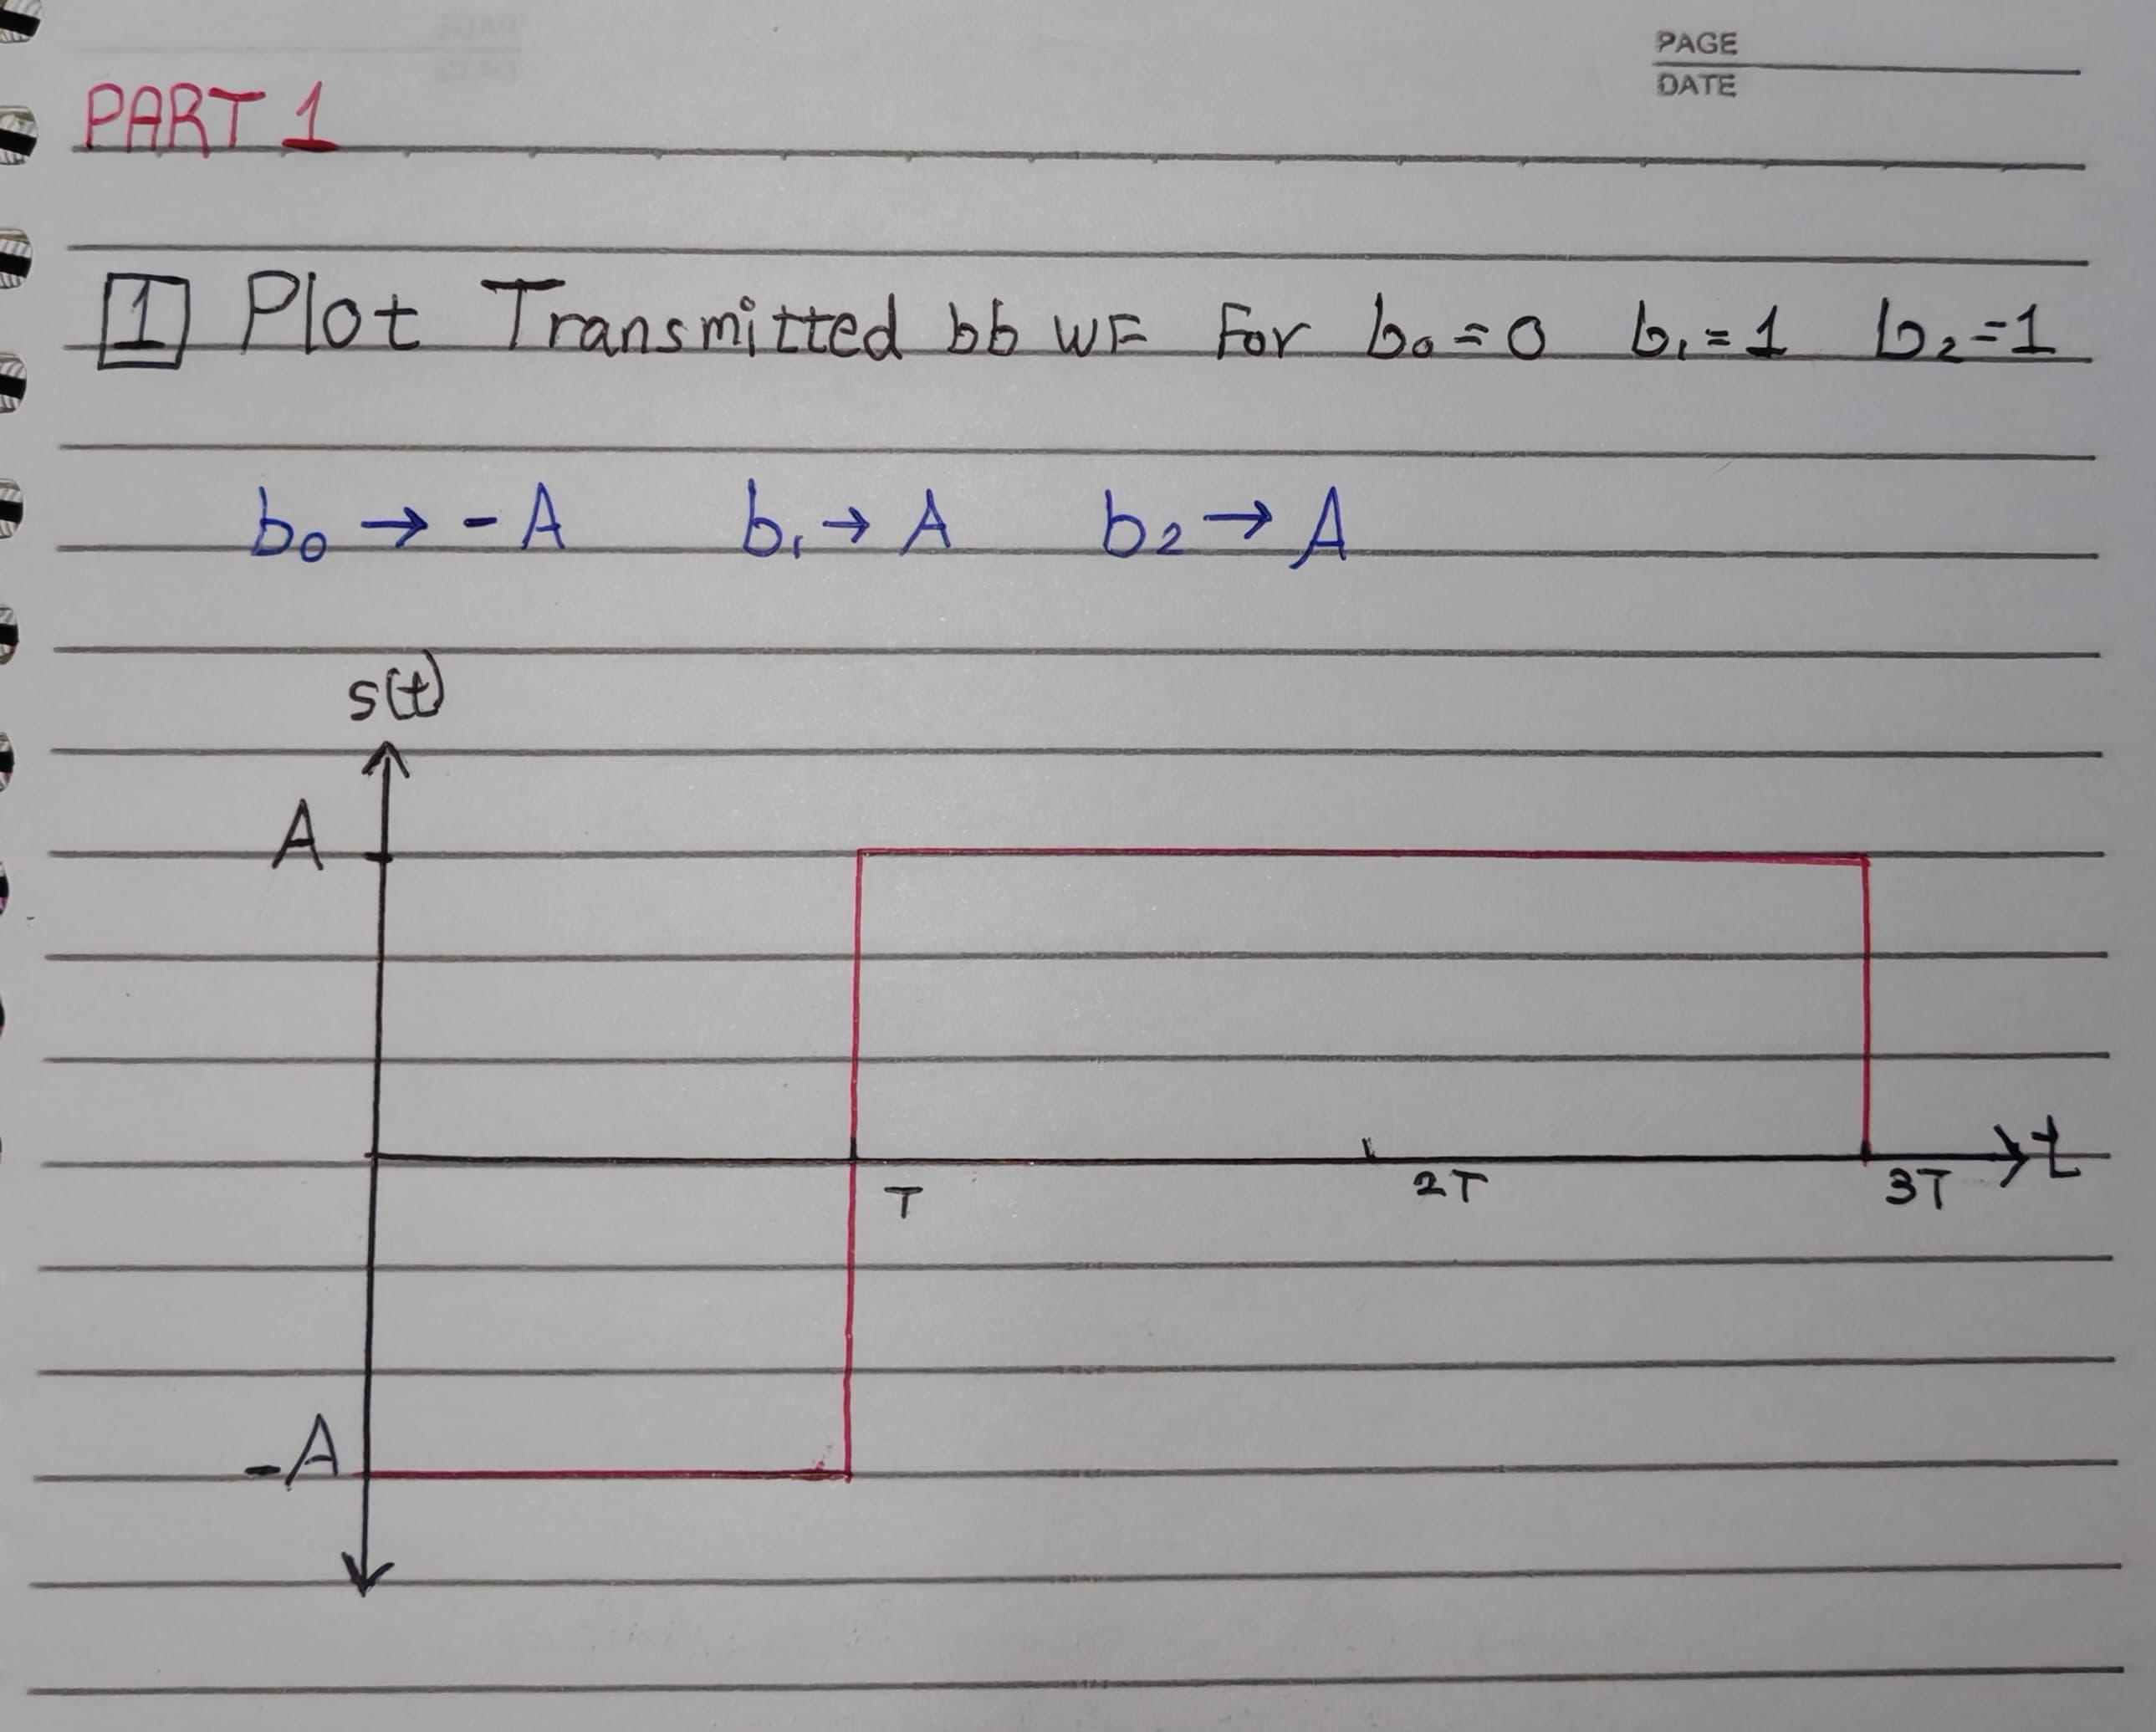 PAGE
DATE
PART 1
1 Plot Transmitted bb WF For b₀=0 b₁=1 b₂=1
b₀→-A b₁→A b₂→A
s(t)
A
t
T 2T 3T
-A